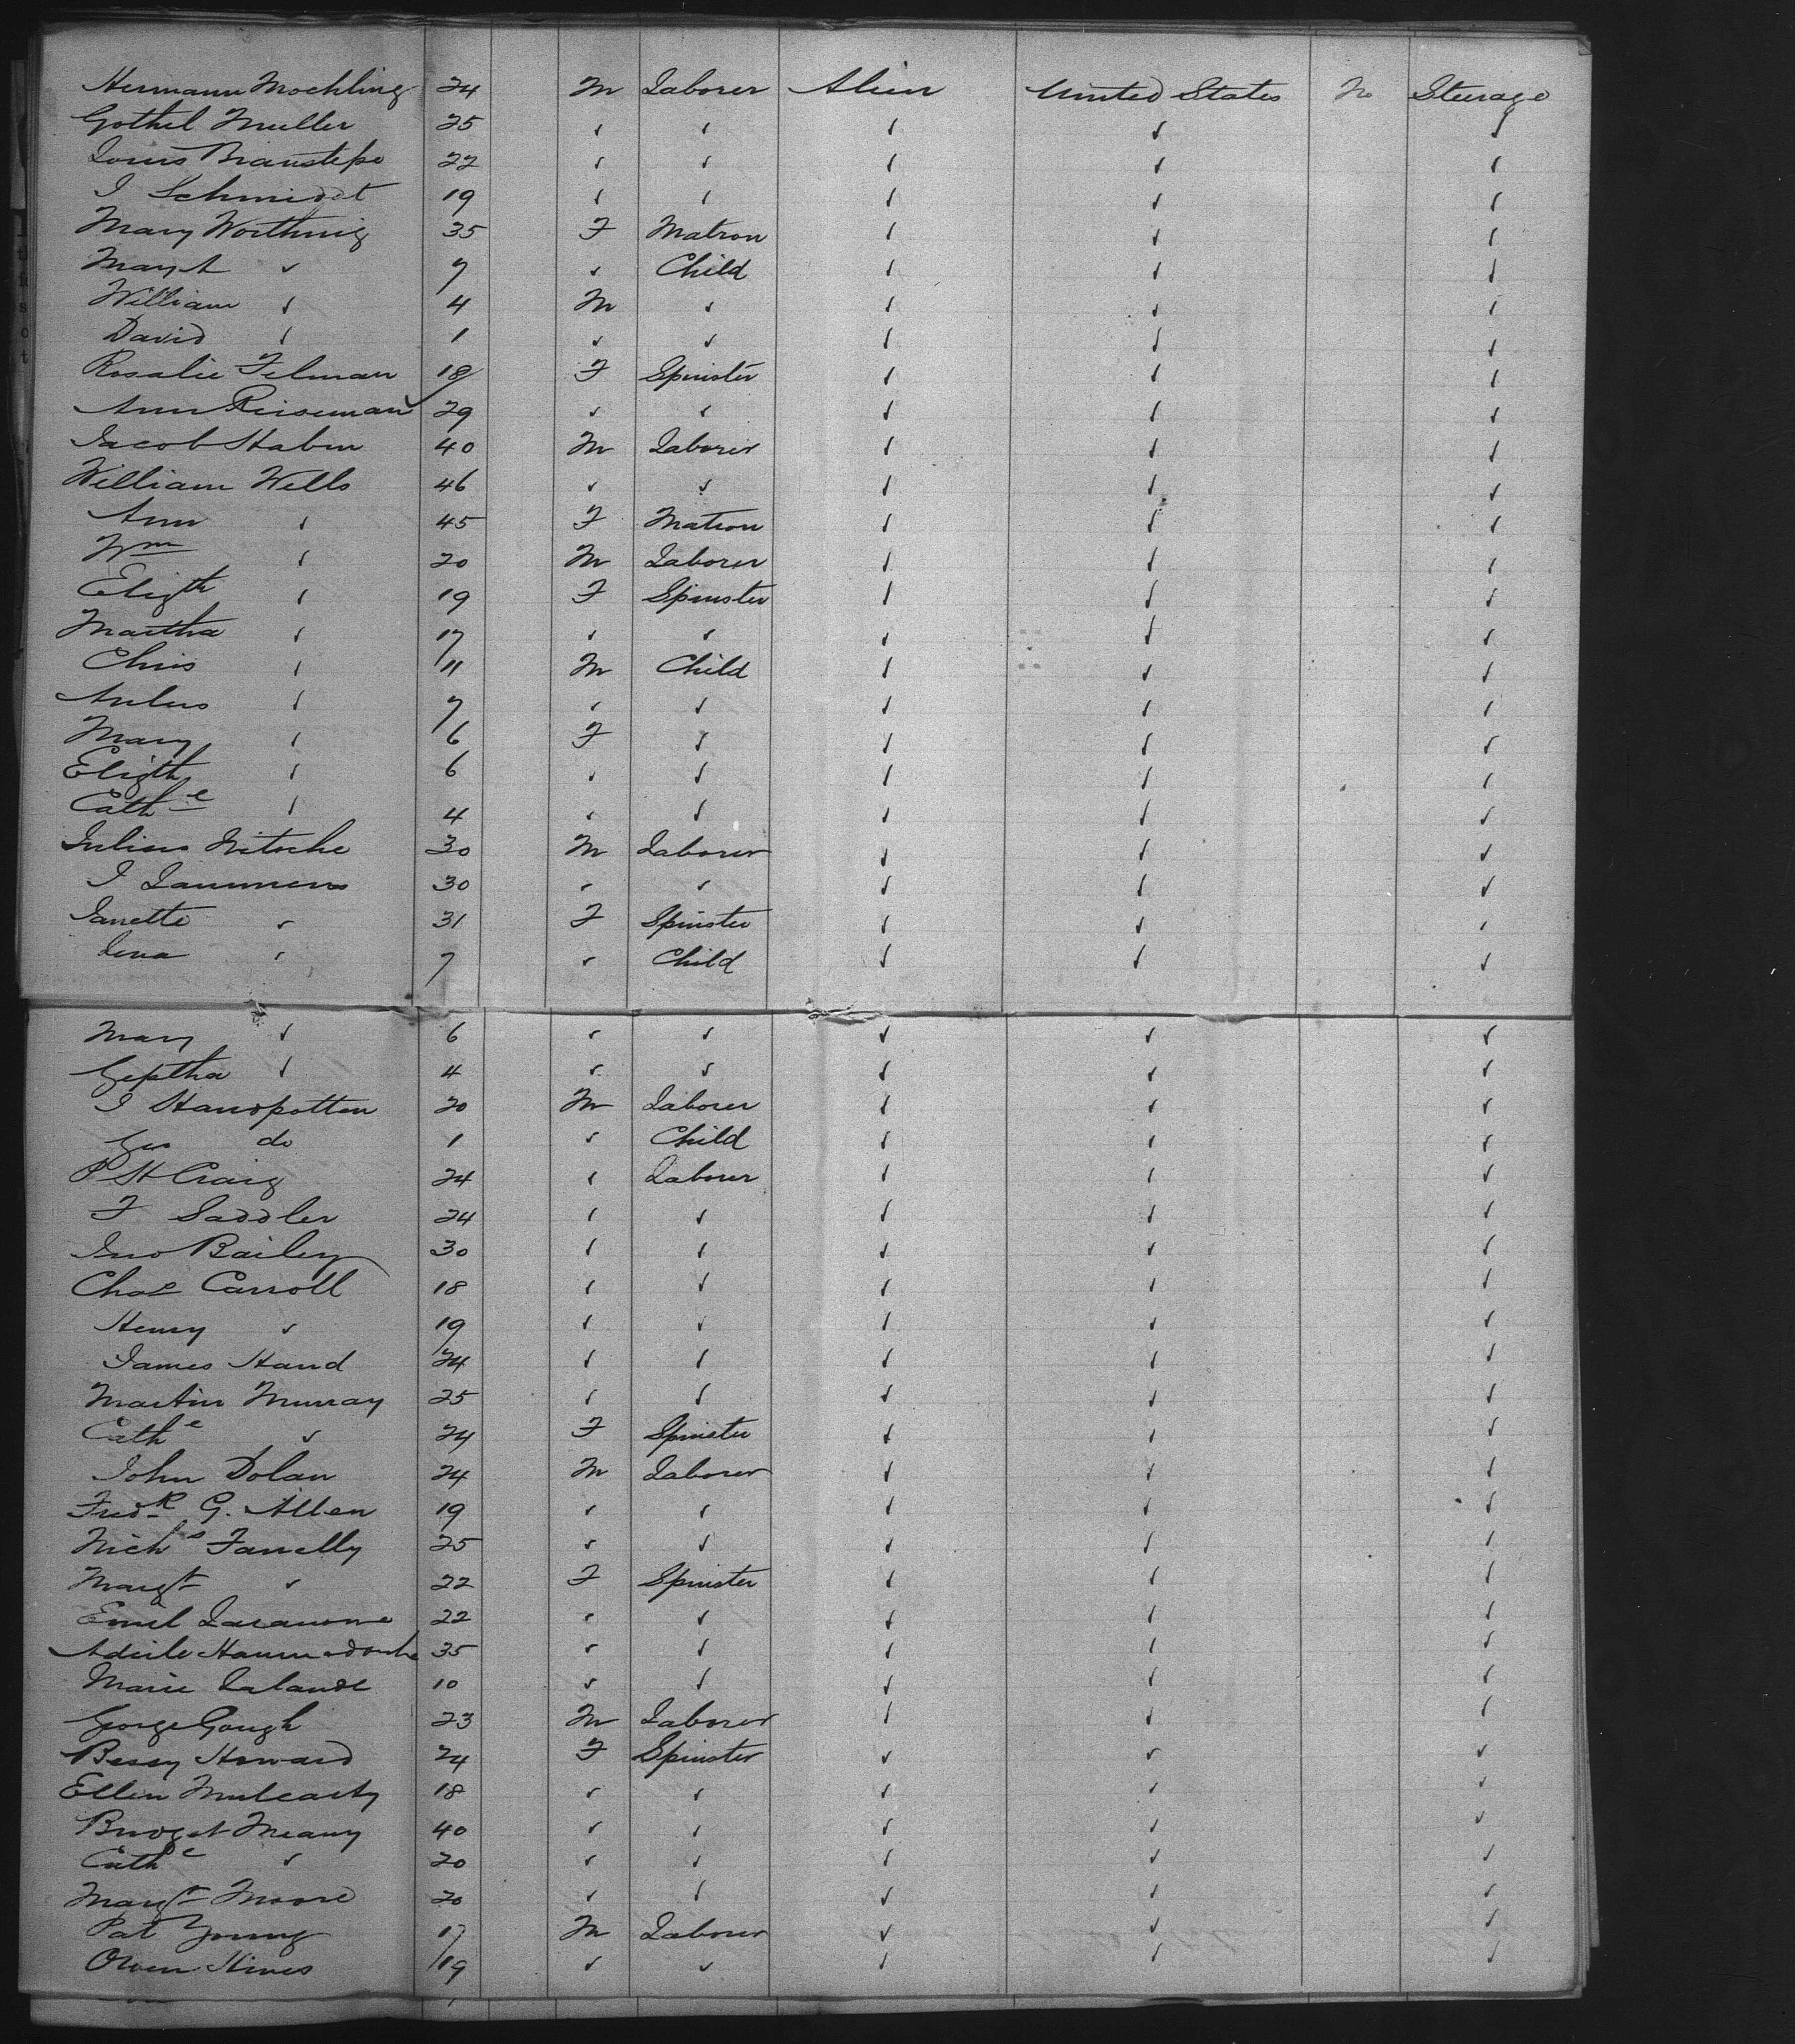 Hermann Mochling 24 M Laborer Alien United States No Steerage
Gothel Muller 25 ✓ ✓ ✓ ✓ ✓
Louis 22 ✓ ✓ ✓ ✓ ✓
I Schmidt 19 ✓ ✓ ✓ ✓ ✓
Mary Worthing 35 F Matron ✓ ✓ ✓
Mary A ✓ 7 ✓ Child ✓ ✓ ✓
William ✓ 4 M ✓ ✓ ✓ ✓
David ✓ 1 ✓ ✓ ✓ ✓ ✓
Rosalie Filman 18 F Spinster ✓ ✓ ✓
Ann Reiseman 29 ✓ ✓ ✓ ✓ ✓
Jacob Habm 40 M Laborer ✓ ✓ ✓
William Wells 46 ✓ ✓ ✓ ✓ ✓
Ann ✓ 45 F Matron ✓ ✓ ✓
Wm ✓ 20 M Laborer ✓ ✓ ✓
Elizth ✓ 19 F Spinster ✓ ✓ ✓
Martha ✓ 17 ✓ ✓ ✓ ✓ ✓
Chris ✓ 11 M Child ✓ ✓ ✓
✓ 7 ✓ ✓ ✓ ✓ ✓
Mary ✓ 6 F ✓ ✓ ✓ ✓
Elizth ✓ 6 ✓ ✓ ✓ ✓ ✓
Cathe ✓ 4 ✓ ✓ ✓ ✓ ✓
Julius Nitsche 30 M Laborer ✓ ✓ ✓
I Lammens 30 ✓ ✓ ✓ ✓ ✓
Janette ✓ 31 F Spinster ✓ ✓ ✓
Lena ✓ 7 ✓ Child ✓ ✓ ✓
Mary ✓ 6 ✓ ✓ ✓ ✓ ✓
Geptha ✓ 4 ✓ ✓ ✓ ✓ ✓
I Handpotten 20 M Laborer ✓ ✓ ✓
Geo do 1 ✓ Child ✓ ✓ ✓
P H Craig 24 ✓ Laborer ✓ ✓ ✓
F Saddler 24 ✓ ✓ ✓ ✓ ✓
Jno Bailey 30 ✓ ✓ ✓ ✓ ✓
Chas Carroll 18 ✓ ✓ ✓ ✓ ✓
Henry ✓ 19 ✓ ✓ ✓ ✓ ✓
James Hand 24 ✓ ✓ ✓ ✓ ✓
Martin Murray 25 ✓ ✓ ✓ ✓ ✓
Cathe ✓ 24 F Spinster ✓ ✓ ✓
John Dolan 24 M Laborer ✓ ✓ ✓
Fredk G. Allen 19 ✓ ✓ ✓ ✓ ✓
Nichs Farrelly 25 ✓ ✓ ✓ ✓ ✓
Margt ✓ 22 F Spinster ✓ ✓ ✓
Emil 22 ✓ ✓ ✓ ✓ ✓
35 ✓ ✓ ✓ ✓ ✓
Marie Lalande 10 ✓ ✓ ✓ ✓ ✓
George Gough 23 M Laborer ✓ ✓ ✓
Bessy Howard 24 F Spinster ✓ ✓ ✓
Ellen Mulcarty 18 ✓ ✓ ✓ ✓ ✓
Bridget Meany 40 ✓ ✓ ✓ ✓ ✓
Cathe ✓ 20 ✓ ✓ ✓ ✓ ✓
Margt Moore 20 ✓ ✓ ✓ ✓ ✓
Pat Young 17 M Laborer ✓ ✓ ✓
Owen Hines 19 ✓ ✓ ✓ ✓ ✓